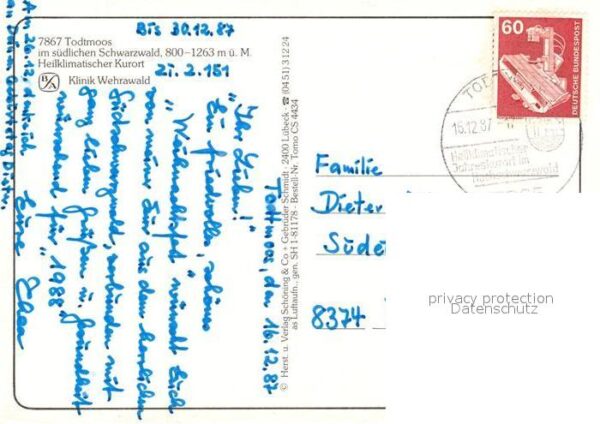 Bis 30.12.87
7867 Todtmoos
im südlichen Schwarzwald, 800–1263 m ü. M.
Heilklimatischer Kurort
Klinik Wehrawald
Zi. 2.151
Todtmoos, den 16.12.87
"Ihr Lieben!"
Ein friedvolles, schönes
"Weihnachtsfest" wünscht Euch
von meiner Kur aus dem herrlichen
Südschwarzwald, verbunden mit
ganz lieben Grüßen u. Gesundheit
während für "1988"
Eure
Am 26.12.
© Herst. u. Verlag Schöning & Co + Gebrüder Schmidt · 2400 Lübeck · ☎ (0451) 31224
as Luftaufn., gen. SH 1-81178 · Bestell-Nr. Tomo CS 4434
60
DEUTSCHE BUNDESPOST
16.12.87
Heilklimatischer
Jahreskurort im
Familie
Dieter
Süde
8374
privacy protection
Datenschutz